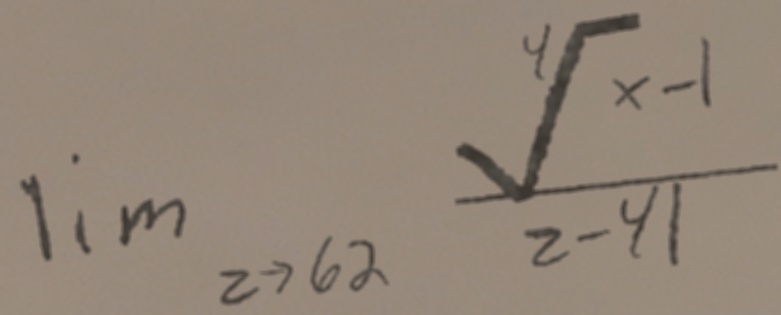 lim z→62 ∜x-1 / z-41